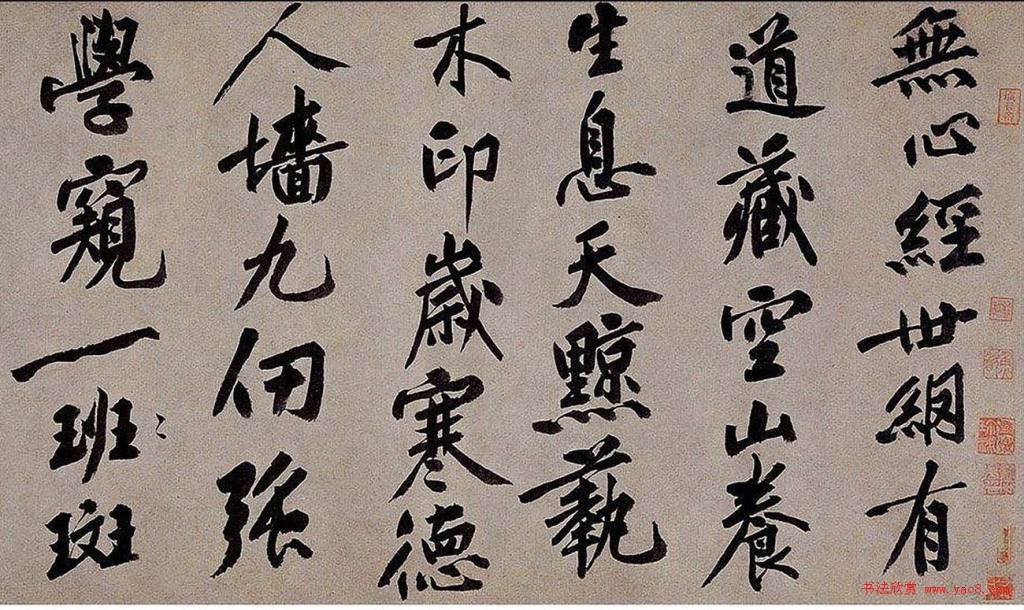 無心經世網有
道藏空山養
生息天黥蓺
木印歲寒德
人牆九仞強
學窺一班斑
书法欣赏 www.yac8.